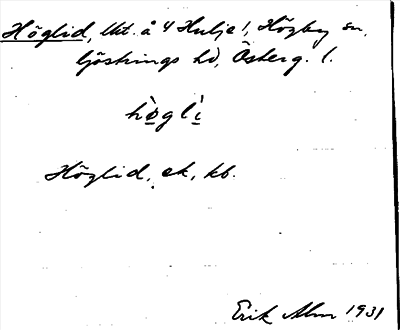 Höglid, lht. å 4 Hulje!, Högby sn,
Göstrings hd, Österg. l.
hòglì
Höglid, ek, kb.
Erik Alm 1931